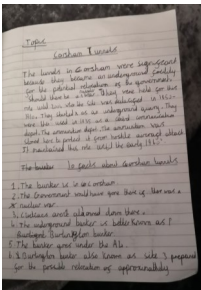 Topic
Corsham Tunnels
The tunnels in Corsham were significant
because they became an underground facility
for the potential relocation of the government
should there be a war. They were held for this
role until the site was
They started a as an underground quarry. They
were in 1935 as a ammunition
depot. The ammunition depot. The ammunition was
stored here to protect it from hostile aircraft attack
It maintained this role until the early 1960's
The bunker 10 facts about Corsham tunnels
1. The bunker is in Corsham
2. The Government would have gone there if there was a
nuclear war.
3. were planned down there.
4. The underground bunker is better known as
Burlington bunker
5. The bunker gone under the
6. Burlington bunker also known as site 3 prepared
for the possible relocation of approximately